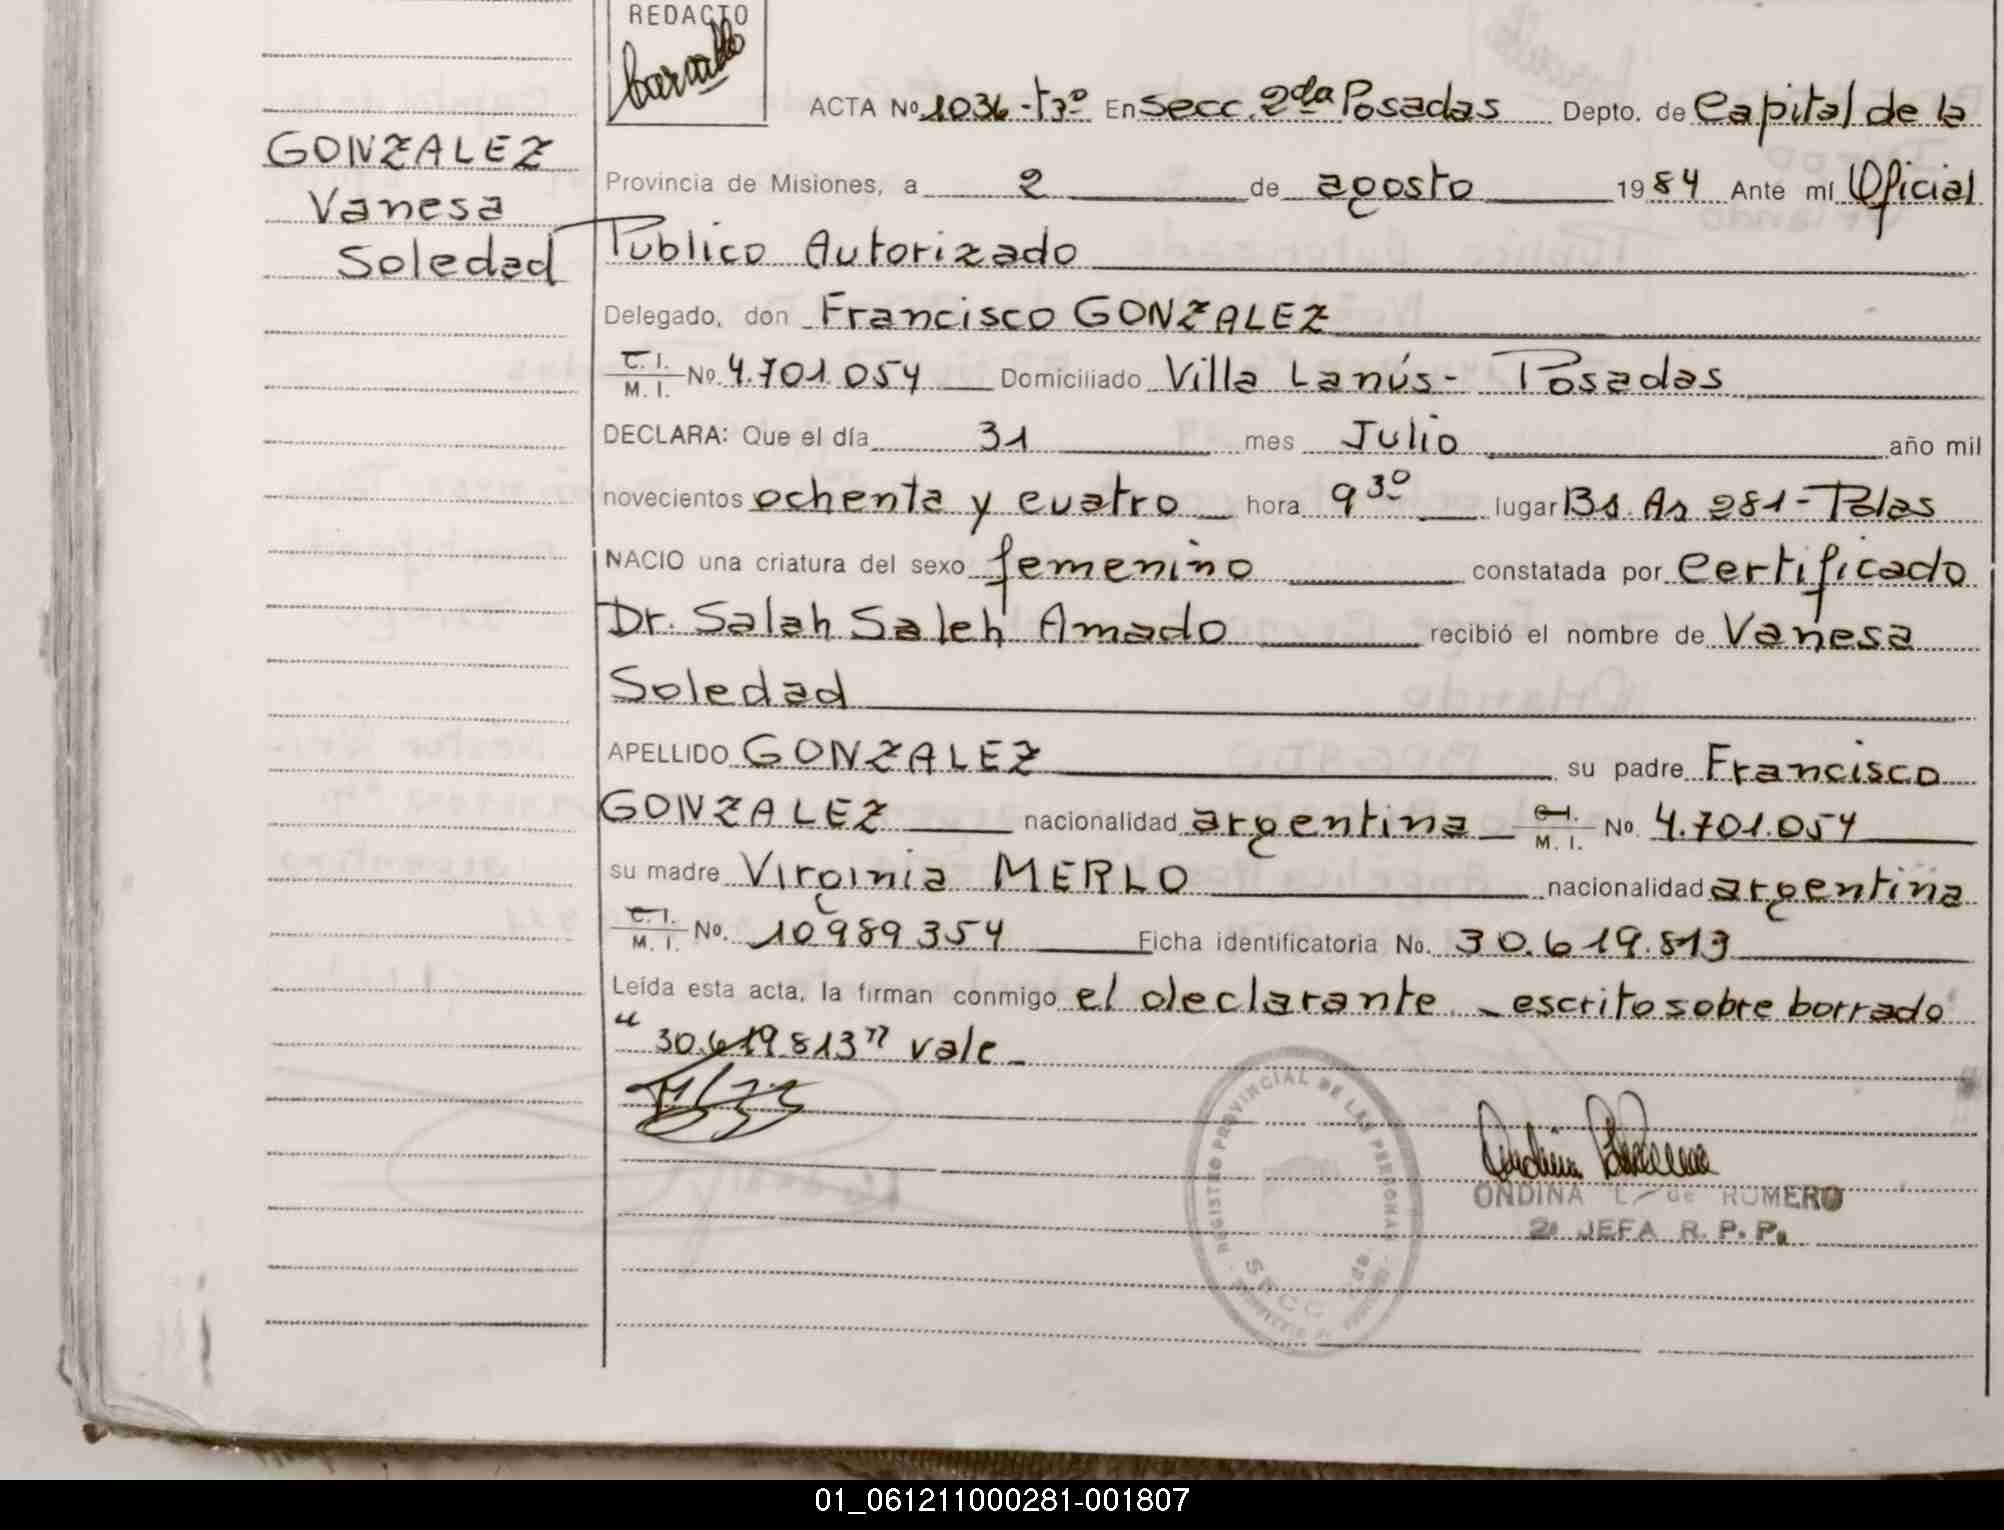 REDACTO
ACTA No 1036-tº3º En Secc. 2da Posadas Depto. de Capital de la
GONZALEZ
Vanesa
Soledad
Provincia de Misiones, a 2 de agosto 1984 Ante mí Oficial
Publico Autorizado
Delegado, don Francisco GONZALEZ
C. I.
M. I. No. 4.701.054 Domiciliado Villa Lanús - Posadas
DECLARA: Que el día 31 mes Julio año mil
novecientos ochenta y cuatro hora 9 30 lugar Bs. As 281 - Pdas
NACIO una criatura del sexo femenino constatada por Certificado
Dr. Salah Saleh Amado recibió el nombre de Vanesa
Soledad
APELLIDO GONZALEZ su padre Francisco
GONZALEZ nacionalidad argentina C. I.
M. I. No. 4.701.054
su madre Virginia MERLO nacionalidad argentina
C. I.
M. I. No. 10989354 Ficha identificatoria No. 30.619.813
Leída esta acta, la firman conmigo el declarante. - escrito sobre borrado
"30.619.813" vale -
REGISTRO PROVINCIAL DE LAS PERSONAS
SECC. 2da.
ONDINA L. de ROMERO
2a JEFA R. P. P.
01_061211000281-001807